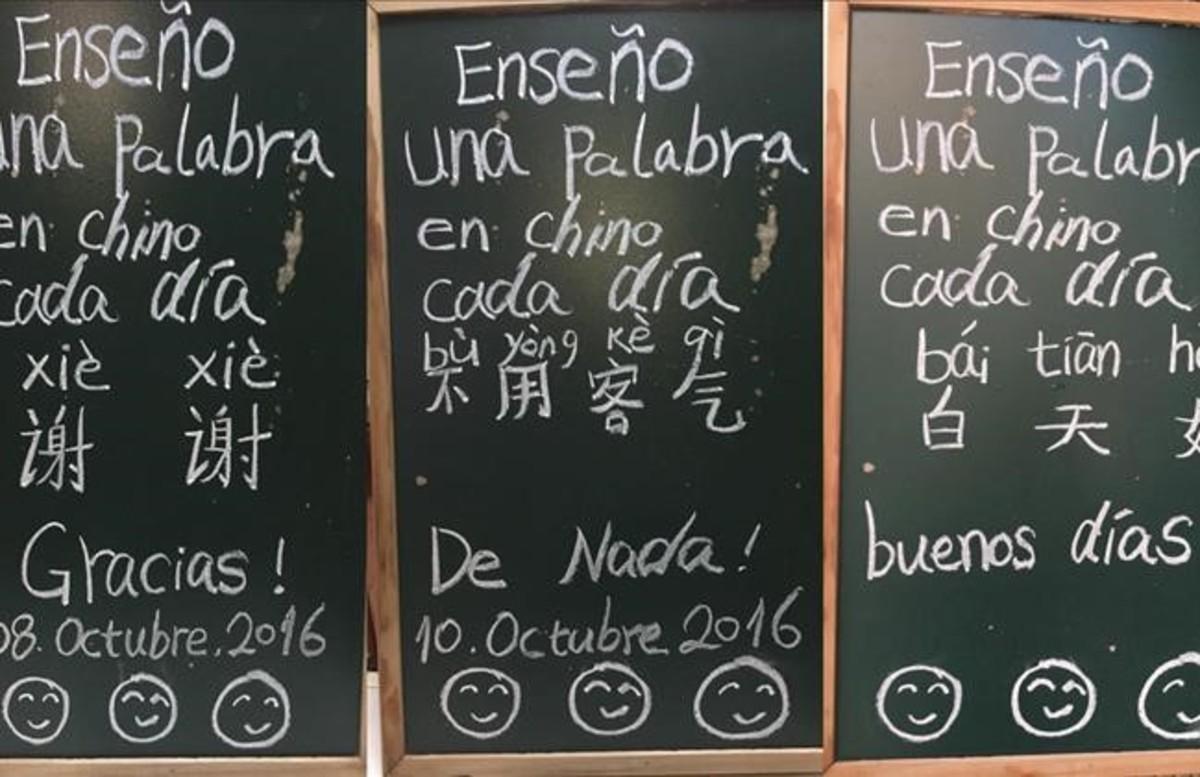 Enseño
una palabra
en chino
cada día
xiè xiè
谢 谢
Gracias!
08.Octubre.2016
Enseño
una palabra
en chino
cada día
bù yòng kè qì
不 用 客 气
De Nada!
10.Octubre 2016
Enseño
una palabr
en chino
cada día
bái tiān h
白 天
buenos días